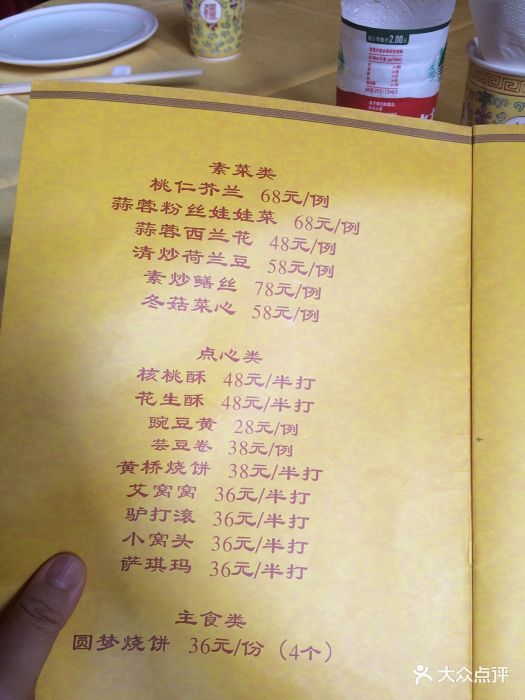 2.00元
素菜类
桃仁芥兰 68元/例
蒜蓉粉丝娃娃菜 68元/例
蒜蓉西兰花 48元/例
清炒荷兰豆 58元/例
素炒鳝丝 78元/例
冬菇菜心 58元/例
点心类
核桃酥 48元/半打
花生酥 48元/半打
豌豆黄 28元/例
芸豆卷 38元/例
黄桥烧饼 38元/半打
艾窝窝 36元/半打
驴打滚 36元/半打
小窝头 36元/半打
萨琪玛 36元/半打
主食类
圆梦烧饼 36元/份（4个）
大众点评